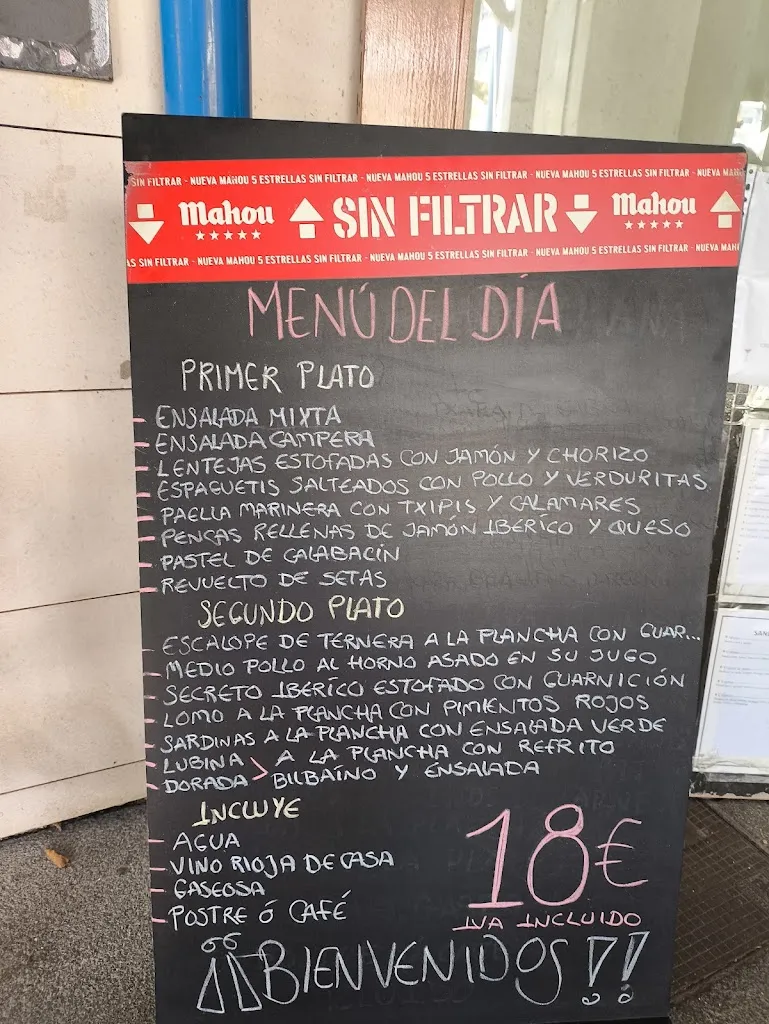 SIN FILTRAR - NUEVA MAHOU 5 ESTRELLAS SIN FILTRAR - NUEVA MAHOU 5 ESTRELLAS SIN FILTRAR - NUEVA MAHOU 5 ESTRELLAS SIN FILTRAR - NUEVA MAH
Mahou SIN FILTRAR Mahou
AS SIN FILTRAR - NUEVA MAHOU 5 ESTRELLAS SIN FILTRAR - NUEVA MAHOU 5 ESTRELLAS SIN FILTRAR - NUEVA MAHOU 5 ESTRELLAS SIN FILTRAR - NUEVA MAH
MENÚ DEL DÍA
PRIMER PLATO
- ENSALADA MIXTA
- ENSALADA CAMPERA
- LENTEJAS ESTOFADAS CON JAMÓN Y CHORIZO
- ESPAGUETIS SALTEADOS CON POLLO Y VERDURITAS
- PAELLA MARINERA CON TXIPIS Y CALAMARES
- PENCAS RELLENAS DE JAMÓN IBERICO Y QUESO
- PASTEL DE CALABACIN
- REVUELTO DE SETAS
SEGUNDO PLATO
- ESCALOPE DE TERNERA A LA PLANCHA CON GUAR...
- MEDIO POLLO AL HORNO ASADO EN SU JUGO
- SECRETO IBERICO ESTOFADO CON GUARNICIÓN
- LOMO A LA PLANCHA CON PIMIENTOS ROJOS
- SARDINAS A LA PLANCHA CON ENSALADA VERDE
- LUBINA > A LA PLANCHA CON REFRITO
- DORADA BILBAÍNO Y ENSALADA
INCLUYE
- AGUA
- VINO RIOJA DE CASA
- GASEOSA
- POSTRE Ó CAFÉ
18€
IVA INCLUIDO
¡¡BIENVENIDOS!!